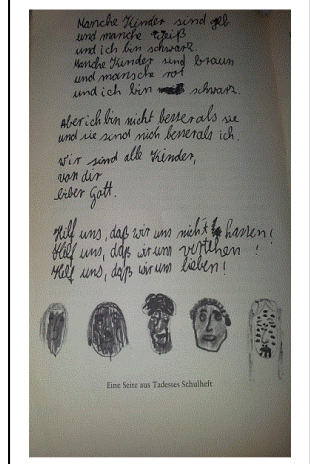 Manche Kinder sind gelb
und manche weiß
und ich bin schwarz.
Manche Kinder sind braun
und mansche rot
und ich bin schwarz.
Aber ich bin nicht besser als sie
und sie sind nich besser als ich.
Wir sind alle Kinder,
von dir
lieber Gott.
Hilf uns, daß wir uns nicht hassen!
Helf uns, daß wir uns verstehen!
Helf uns, daß wir uns lieben!
Eine Seite aus Tadesses Schulheft